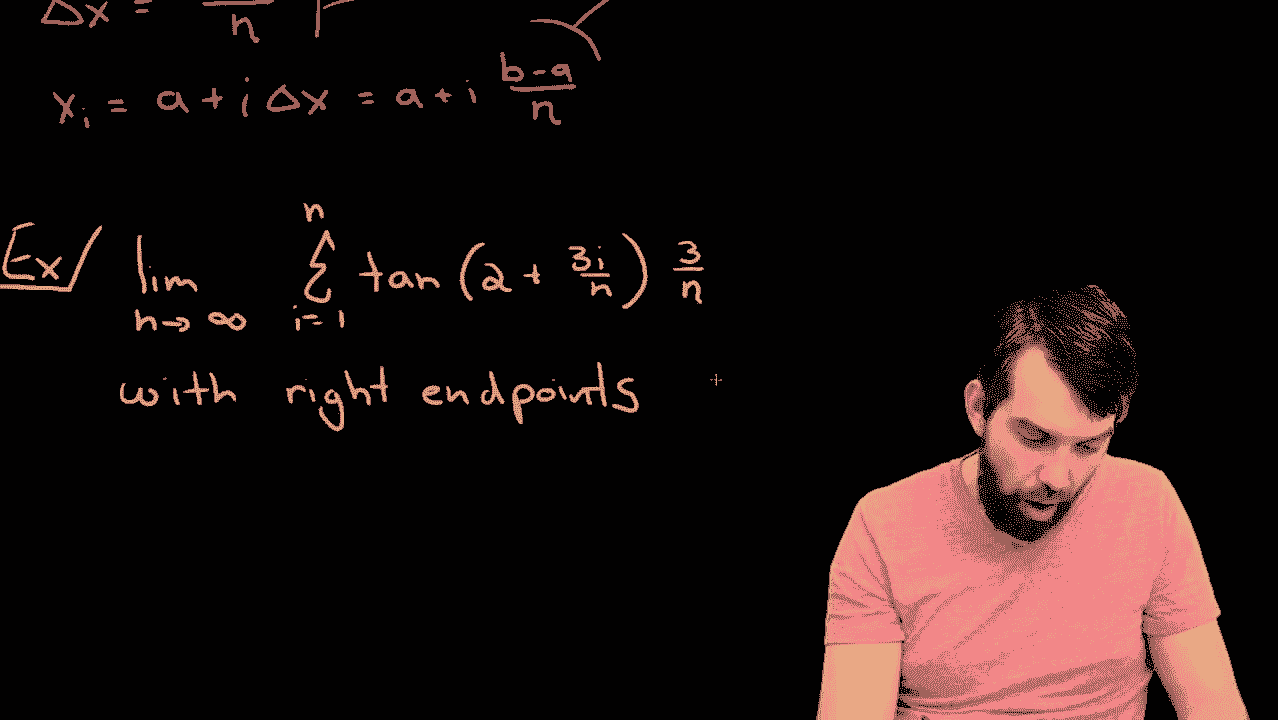 Δx = — n
xᵢ = a + i Δx = a + i (b-a)/n
Ex/ lim n→∞ Σ i=1 n tan (2 + 3i/n) 3/n
with right endpoints